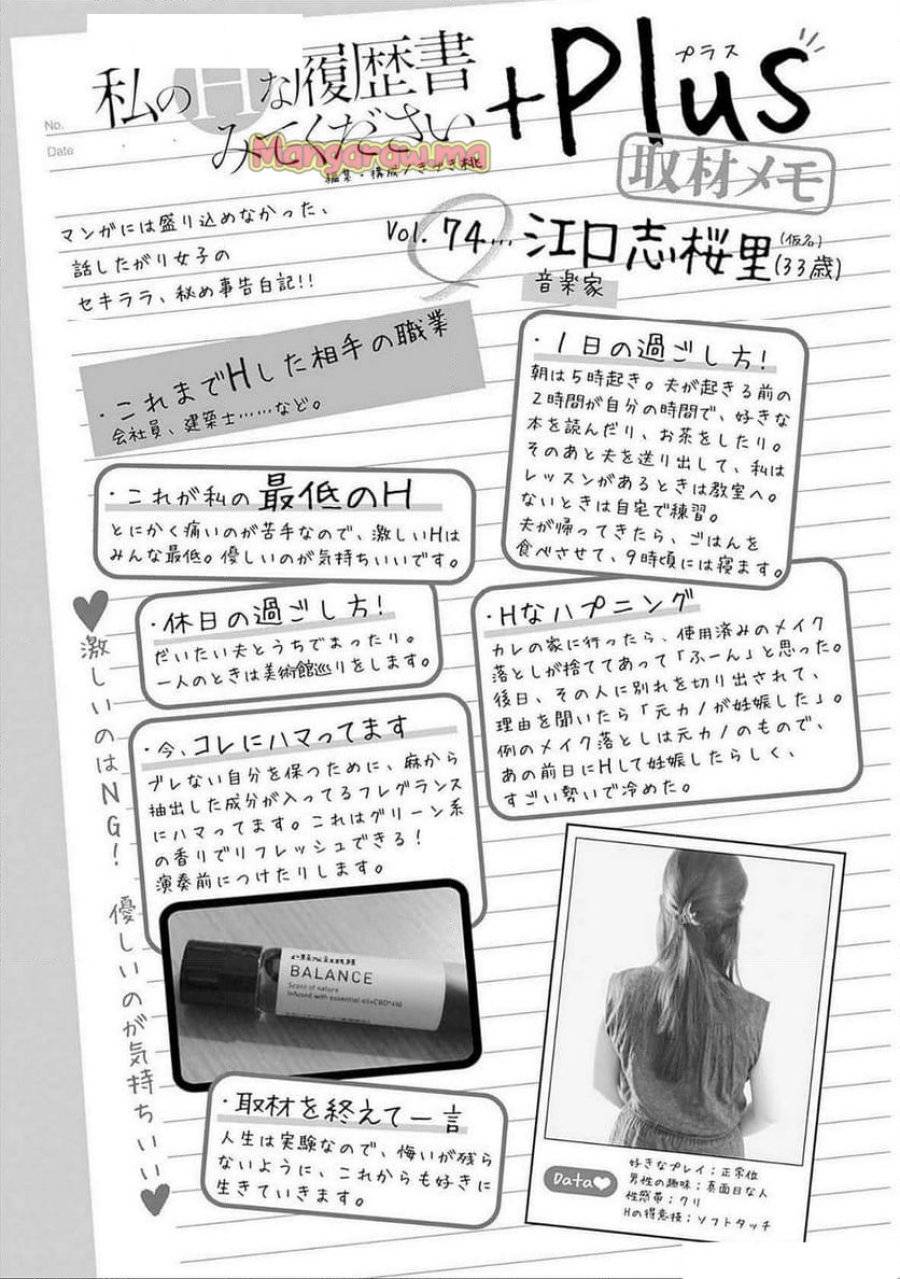 No.
Date
私のHな履歴書
みてください
+Plus
プラス
Mangaraw.ma
取材メモ
マンガには盛り込めなかった、
話したがり女子の
セキララ、秘め事告白記!!
Vol. 74… 江口志桜里(仮名)(33歳)
音楽家
・これまでHした相手の職業
会社員、建築士……など。
・1日の過ごし方!
朝は5時起き。夫が起きる前の
2時間が自分の時間で、好きな
本を読んだり、お茶をしたり。
そのあと夫を送り出して、私は
レッスンがあるときは教室へ。
ないときは自宅で練習。
夫が帰ってきたら、ごはんを
食べさせて、9時頃には寝ます。
・これが私の最低のH
とにかく痛いのが苦手なので、激しいHは
みんな最低。優しいのが気持ちいいです。
・休日の過ごし方!
だいたい夫とうちでまったり。
一人のときは美術館巡りをします。
・Hなハプニング
カレの家に行ったら、使用済みのメイク
落としが捨ててあって「ふーん」と思った。
後日、その人に別れを切り出されて、
理由を聞いたら「元カノが妊娠した」。
例のメイク落としは元カノのもので、
あの前日にHして妊娠したらしく、
すごい勢いで冷めた。
・今、コレにハマってます
ブレない自分を保つために、麻から
抽出した成分が入ってるフレグランス
にハマってます。これはグリーン系
の香りでリフレッシュできる!
演奏前につけたりします。
BALANCE
Scent of nature
Infused with essential oil+CBD
激しいのはNG! 優しいのが気持ちいい
・取材を終えて一言
人生は実験なので、悔いが残ら
ないように、これからも好きに
生きていきます。
Data
好きなプレイ:正常位
男性の趣味:真面目な人
性感帯:クリ
Hの得意技:ソフトタッチ